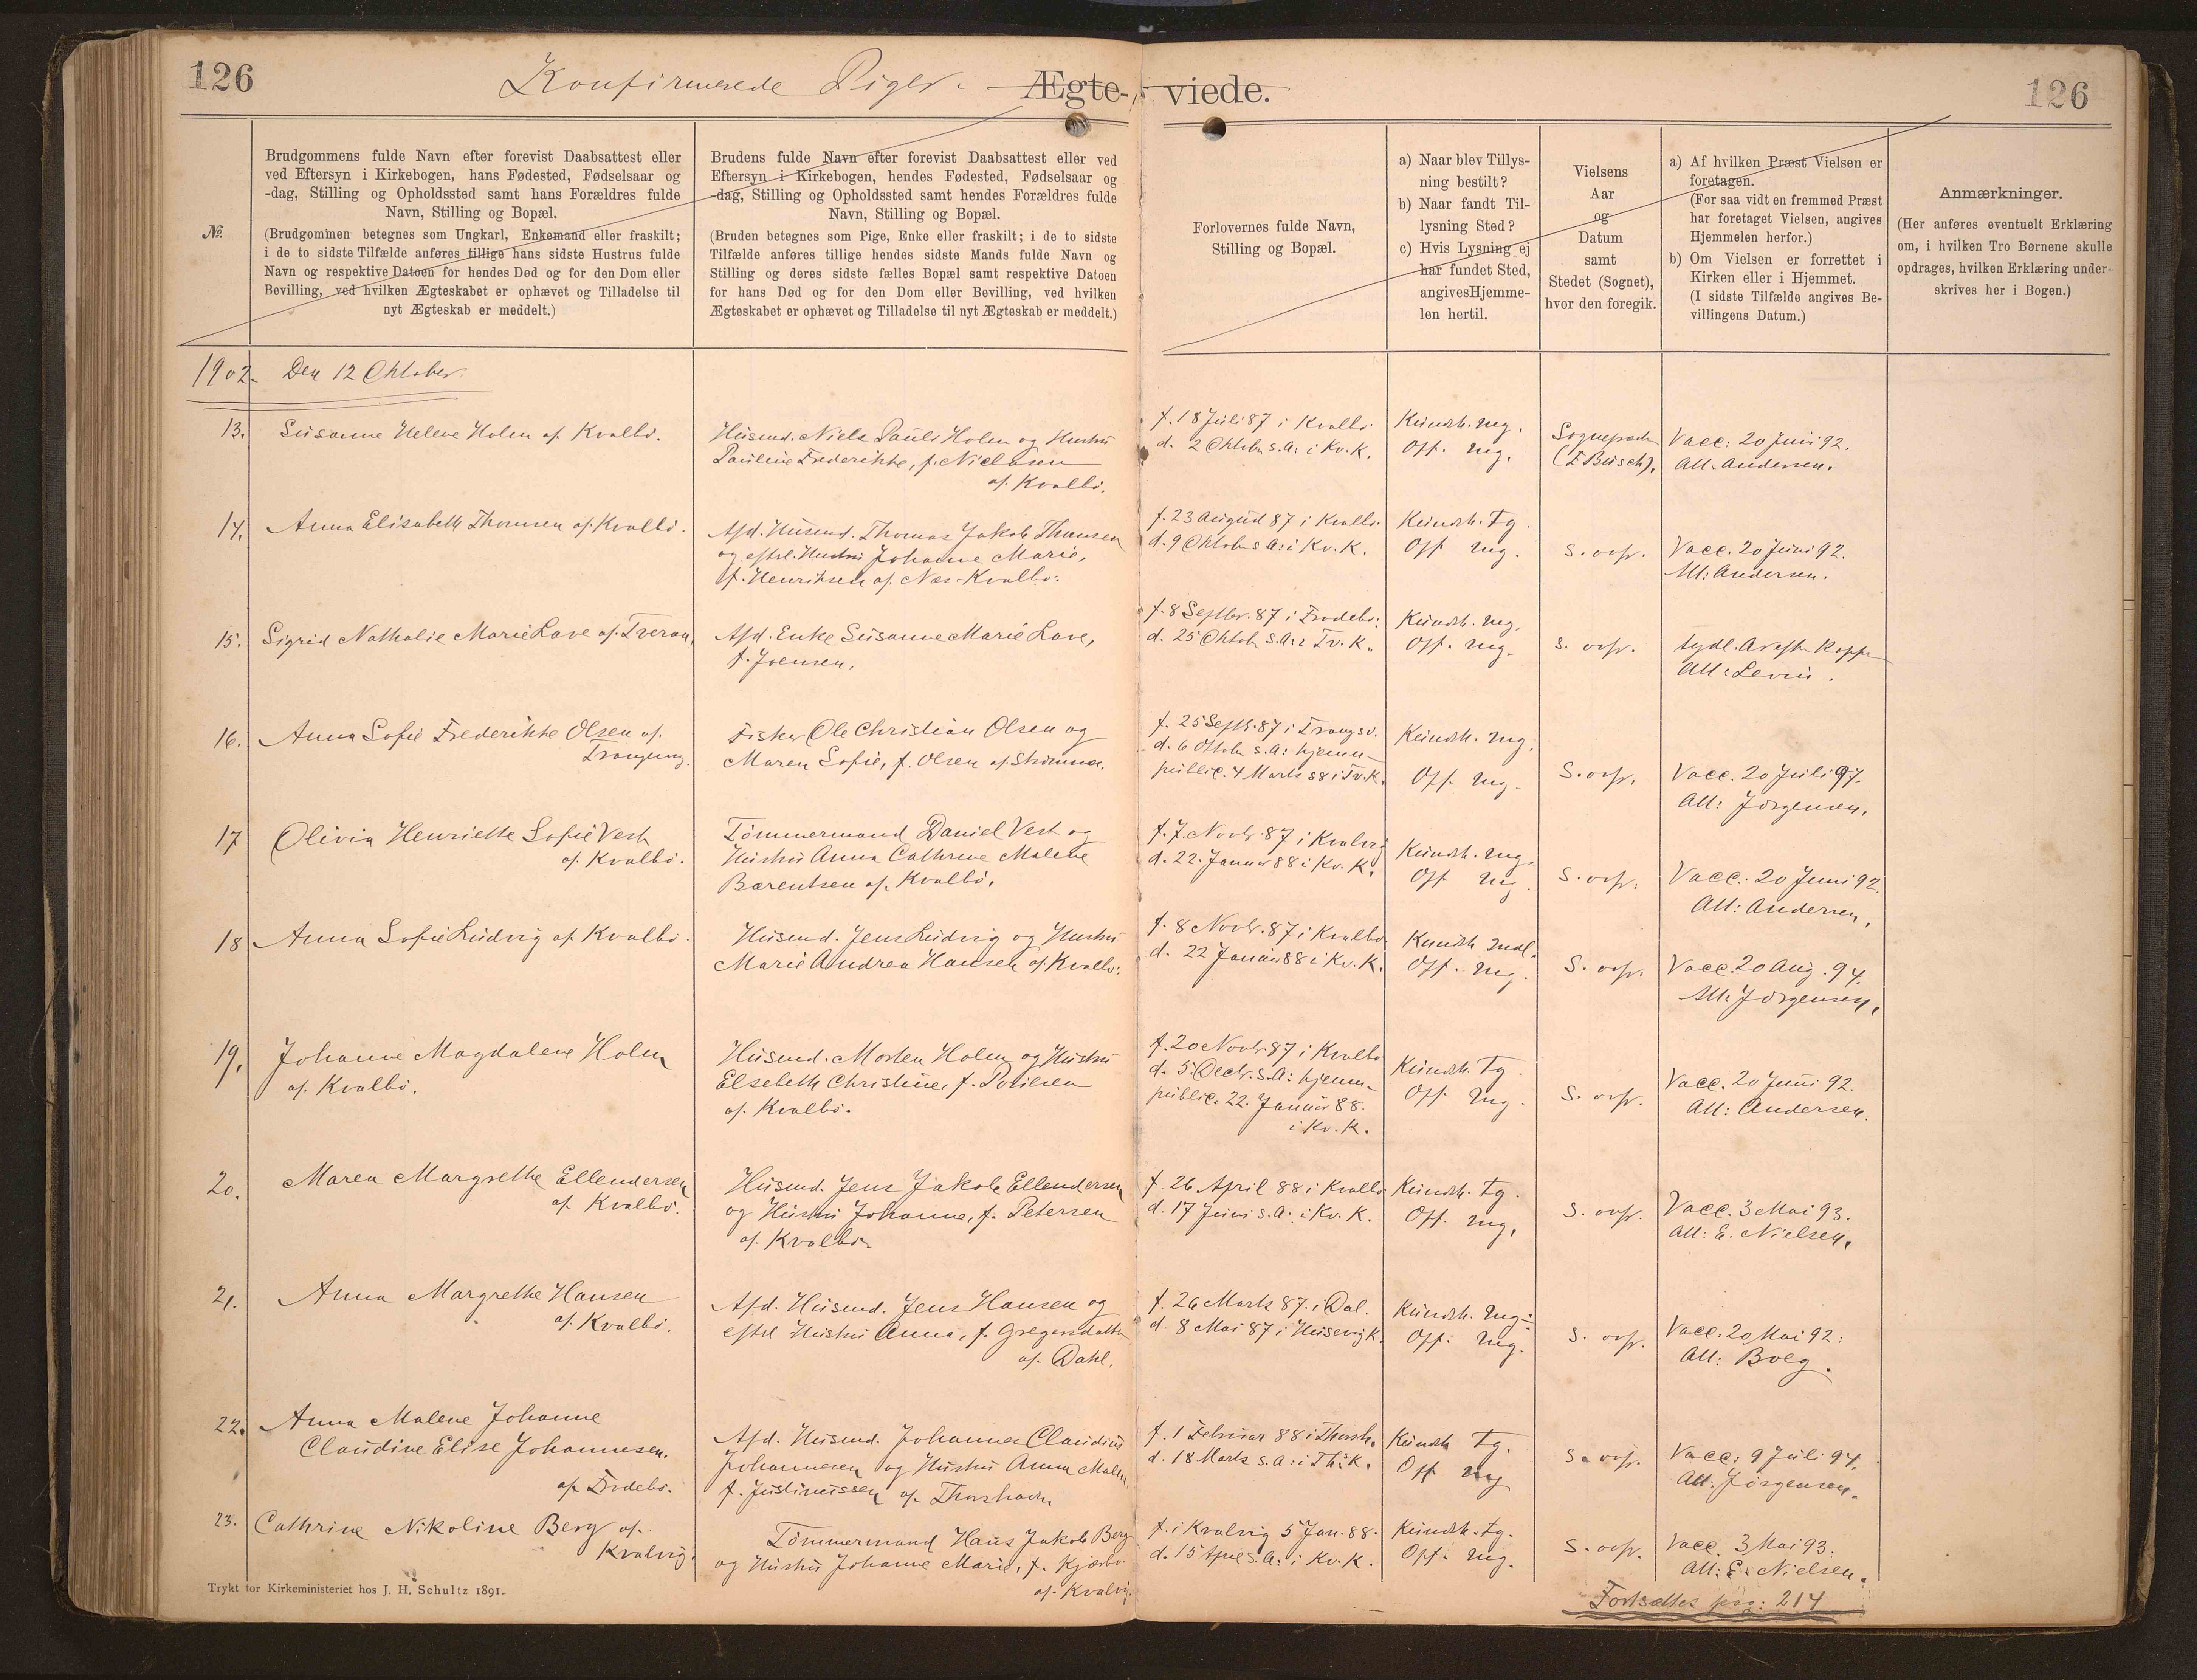 126
Konfirmerede Piger.
Ægte-
viede.
126
№.
Brudgommens fulde Navn efter forevist Daabsattest eller
ved Eftersyn i Kirkebogen, hans Fødested, Fødselsaar og
-dag, Stilling og Opholdssted samt hans Forældres fulde
Navn, Stilling og Bopæl.
(Brudgommen betegnes som Ungkarl, Enkemand eller fraskilt;
i de to sidste Tilfælde anføres tillige hans sidste Hustrus fulde
Navn og respektive Datoen for hendes Død og for den Dom eller
Bevilling, ved hvilken Ægteskabet er ophævet og Tilladelse til
nyt Ægteskab er meddelt.)
Brudens fulde Navn efter forevist Daabsattest eller ved
Eftersyn i Kirkebogen, hendes Fødested, Fødselsaar og
-dag, Stilling og Opholdssted samt hendes Forældres fulde
Navn, Stilling og Bopæl.
(Bruden betegnes som Pige, Enke eller fraskilt; i de to sidste
Tilfælde anføres tillige hendes sidste Mands fulde Navn og
Stilling og deres sidste fælles Bopæl samt respektive Datoen
for hans Død og for den Dom eller Bevilling, ved hvilken
Ægteskabet er ophævet og Tilladelse til nyt Ægteskab er meddelt.)
Forlovernes fulde Navn,
Stilling og Bopæl.
a) Naar blev Tillys-
ning bestilt?
b) Naar fandt Til-
lysning Sted?
c) Hvis Lysning ej
har fundet Sted,
angives Hjemme-
len hertil.
Vielsens
Aar
og
Datum
samt
Stedet (Sognet),
hvor den foregik.
a) Af hvilken Præst Vielsen er
foretagen.
(For saa vidt en fremmed Præst
har foretaget Vielsen, angives
Hjemmelen herfor.)
b) Om Vielsen er forrettet i
Kirken eller i Hjemmet.
(I sidste Tilfælde angives Be-
villingens Datum.)
Anmærkninger.
(Her anføres eventuelt Erklæring
om, i hvilken Tro Børnene skulle
opdrages, hvilken Erklæring under-
skrives her i Bogen.)
1902. Den 12 Oktober.
13. Susanne Helene Holm af Kvalbø.
Husmd. Niels Pauli Holm og Hustru
Pauline Frederikke, f. Niclasen
af Kvalbø.
f. 18 Juli 87 i Kvalbø
d. 2 Oktobr s. A. i Kv. K.
Kundsk. mg.
Opf. mg.
Sognepræsten
(F. Busch).
Vacc: 20 Juni 92.
Att. Andersen.
14. Anna Elisabeth Thomsen af Kvalbø.
Afd. Husmd. Thomas Jakob Thomsen
og efterl. Hustru Johanne Marie,
f. Henriksen af Næs-Kvalbø.
f. 23 August 87 i Kvalbø.
d. 9 Oktobr s. A. i Kv. K.
Kundsk. tg.
Opf. mg.
S. ovf.
Vacc. 20 Juni 92.
Att: Andersen.
15. Sigrid Nathalie Marie Lave af Tveraa,
Afd. Enke Susanne Marie Lave,
f. Joensen.
f. 8 Septbr. 87 i Frodebø.
d. 25 Oktobr s. A. i Tv. K.
Kundsk. mg.
Opf. mg.
S. ovf.
tydl. Ar eft. Kopper
Att: Levin.
16. Anna Sofie Frederikke Olsen af
Trangsv.
Fisker Ole Christian Olsen og
Maren Sofie, f. Olsen af Strømnæs.
f. 25 Septb. 87 i Trangsv.
d. 6 Oktobr s. A. hjemme-
public. 4 Marts 88 i Tv. K.
Kundsk. mg.
Opf. mg.
S. ovf.
Vacc. 20 Juli 97.
Att: Jørgensen.
17 Olivia Henriette Sofie Vest
af Kvalbø.
Tømmermand Daniel Vest og
Hustru Anna Cathrine Malene
Bærentsen af Kvalbø.
f. 7. Novbr. 87 i Kvalvig
d. 22. Januar 88 i Kv. K.
Kundsk. mg.
Opf. mg.
S. ovf.
Vacc. 20 Juni 92.
Att: Andersen.
18 Anna Sofie Ludvig af Kvalbø.
Husmd. Jens Ludvig og Hustru
Marie Andrea Hansen af Kvalbø.
f. 8 Novbr. 87 i Kvalbø
d. 22 Januar 88 i Kv. K.
Kundsk mdl.
Opf. mg.
S. ovf.
Vacc. 20 Aug. 94.
Att. Jørgensen.
19. Johanne Magdalene Holm
af Kvalbø.
Husmd. Morten Holm og Hustru
Elsebeth Christine, f. Poulsen
af Kvalbø.
f. 20 Novbr. 87 i Kvalbø
d. 5. Decbr. s. A. hjemme-
public. 22. Januar 88.
i Kv. K.
Kundsk. tg.
Opf. mg.
S. ovf.
Vacc. 20 Juni 92.
Att: Andersen.
20. Maren Margrethe Ellendersen
af Kvalbø.
Husmd. Jens Jakob Ellendersen
og Hustru Johanne, f. Petersen
af Kvalbø.
f. 26 April 88 i Kvalbø
d. 17 Juni s. A. i Kv. K.
Kundsk. tg.
Opf. mg.
S. ovf.
Vacc. 3 Mai 93.
Att: E. Nielsen.
21. Anna Margrethe Hansen
af Kvalbø.
Afd. Husmd. Jens Hansen og
efterl Hustru Anna, f. Gregersdatter
af Dahl.
f. 26 Marts 87. i Dal.
d. 8 Mai 87 i Husevig K.
Kundsk. mg÷
Opf. mg.
S. ovf.
Vacc. 20 Mai 92:
Att: Boeg.
22. Anna Malene Johanne
Claudine Elise Johannesen.
af Frodebø.
Afd. Husmd. Johannes Claudius
Johannesen og Hustru Anna Malene
f. Justinussen af Thorshavn
f. 1 Februar 88 i Thorsh.
d. 18 Marts s. A. i Th. K.
Kundsk tg.
Opf mg
S. ovf.
Vacc: 9 Juli 94.
Att: Jørgensen.
23. Cathrine Nikoline Berg af
Kvalvig.
Tømmermand Hans Jakob Berg
og Hustru Johanne Marie, f. Kjærbo
af Kvalvig.
f. i Kvalvig 5 Jan. 88.
d. 15 April s. A. i Kv. K.
Kundsk. tg.
Opf. mg.
S. ovf.
Vacc. 3 Mai 93.
Att: E. Nielsen.
Trykt for Kirkeministeriet hos J. H. Schultz 1891.
Fortsættes pag: 214